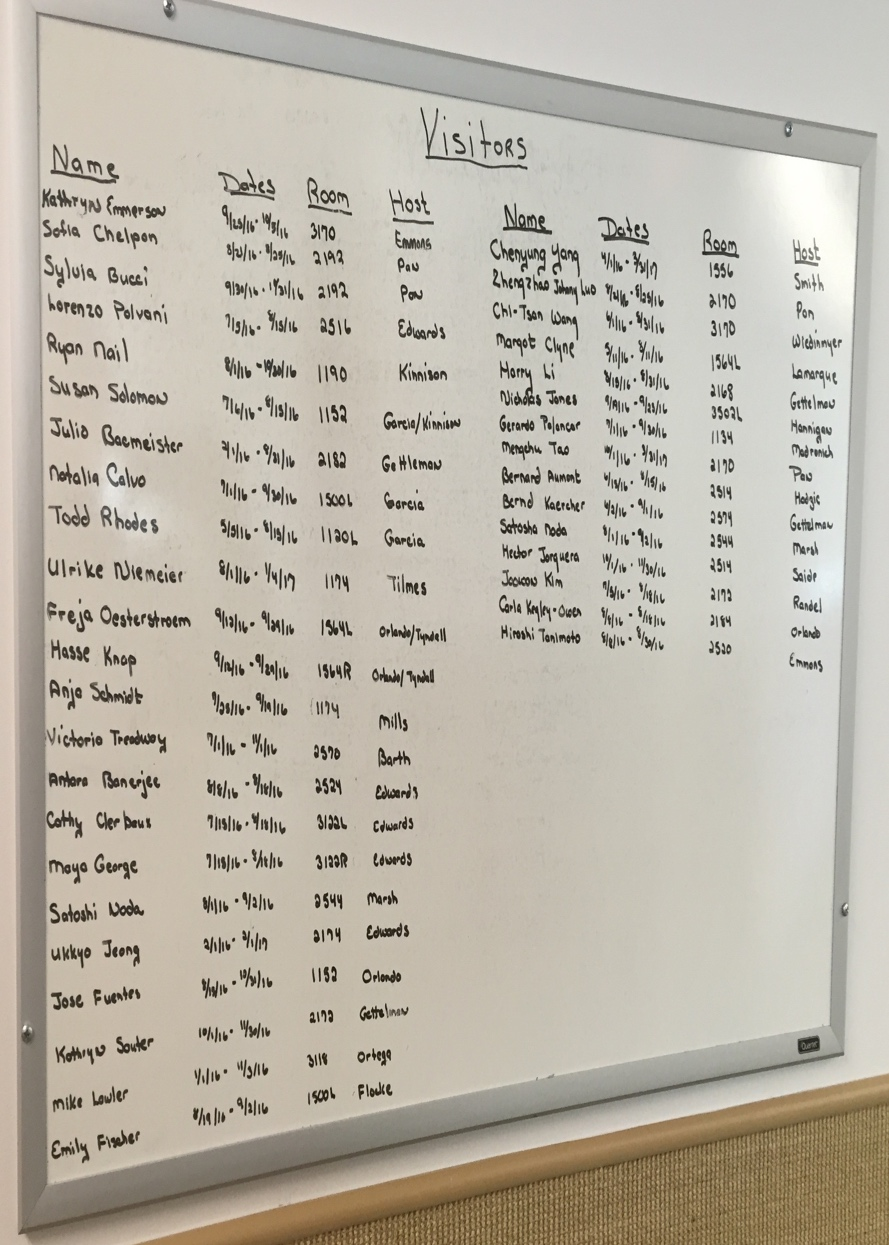 Visitors
Name Dates Room Host
Kathryn Emmerson 9/25/16 - 10/5/16 3170 Emmons
Sofia Chelpon 8/21/16 - 8/25/16 2192 Pan
Sylvia Bucci 9/30/16 - 10/31/16 2192 Pan
Lorenzo Polvani 7/5/16 - 8/15/16 2516 Edwards
Ryan Nail 8/1/16 - 10/30/16 1190 Kinnison
Susan Solomon 7/6/16 - 8/15/16 1152 Garcia/Kinnison
Julio Bacmeister 7/1/16 - 8/31/16 2182 Gettleman
Natalia Calvo 7/1/16 - 9/30/16 1500L Garcia
Todd Rhodes 5/5/16 - 8/15/16 1120L Garcia
Ulrike Niemeier 8/1/16 - 1/4/17 1174 Tilmes
Freja Oesterstroem 9/12/16 - 9/29/16 1564L Orlando/Tyndell
Hasse Knap 9/12/16 - 9/29/16 1564R Orlando/Tyndell
Anja Schmidt 9/19/16 1174 Mills
Victoria Treadway 7/1/16 - 11/1/16 2570 Barth
Antara Banerjee 8/8/16 - 8/18/16 2524 Edwards
Cathy Clerbaux 7/15/16 - 8/18/16 3122L Edwards
Maya George 7/15/16 - 8/18/16 3122R Edwards
Satoshi Noda 8/1/16 - 9/2/16 2544 Marsh
Ukkyo Jeong 2/1/16 - 2/1/17 2174 Edwards
Jose Fuentes 8/15/16 - 10/31/16 1152 Orlando
Kathryn Sauter 10/1/16 - 11/30/16 2172 Gettelman
Mike Lawler 1/1/16 - 11/3/16 3118 Ortega
Emily Fischer 8/19/16 - 9/2/16 1500L Flocke
Name Dates Room Host
Chenyung Yang 4/1/16 - 3/31/17 1556 Smith
Zhengzhao Johnny Luo 8/21/16 - 8/25/16 2170 Pan
Chi-Tson Wang 4/1/16 - 8/31/16 3170 Wiedinmyer
Margot Clyne 5/11/16 - 8/11/16 1564L Lamarque
Harry Li 8/15/16 - 8/31/16 2168 Gettelman
Nicholas Jones 9/19/16 - 9/23/16 3502L Hannigan
Gerardo Polancar 7/1/16 - 9/30/16 1134 Madronich
Mengchu Tao 10/1/16 - 3/31/17 2170 Pan
Bernard Aumont 6/15/16 - 8/15/16 2514 Hodzic
Bernd Kaercher 6/2/16 - 9/1/16 2574 Gettelman
Satosha Noda 8/1/16 - 9/2/16 2544 Marsh
Hector Jorquera 10/1/16 - 11/30/16 2514 Saide
Kim 7/5/16 - 8/18/16 2172 Randel
Carla Kegley-Owen 8/8/16 - 8/18/16 2184 Orlando
Hiroshi Tanimoto 8/8/16 - 8/30/16 2520 Emmons
Quartet